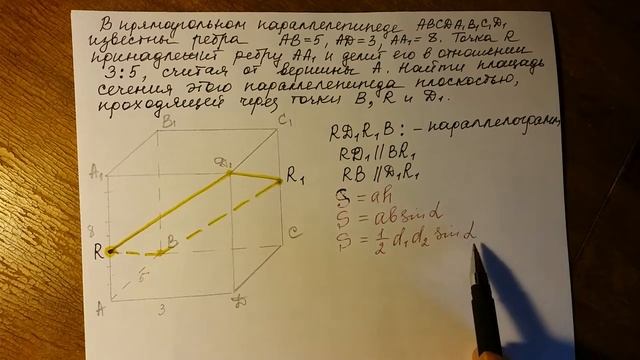 В прямоугольном параллелепипеде ABCDA₁B₁C₁D₁
известны ребра AB=5, AD=3, AA₁=8. Точка R
принадлежит ребру AA₁ и делит его в отношении
3:5, считая от вершины A. Найти площадь
сечения этого параллелепипеда плоскостью,
проходящей через точки B, R и D₁.
B₁
C₁
A₁
D₁
R₁
R
8
B
C
5
A
3
D
RD₁R₁B: - параллелограмм
RD₁ // BR₁
RB // D₁R₁
S = ah
S = ab sin α
S = 1/2 d₁ d₂ sin α